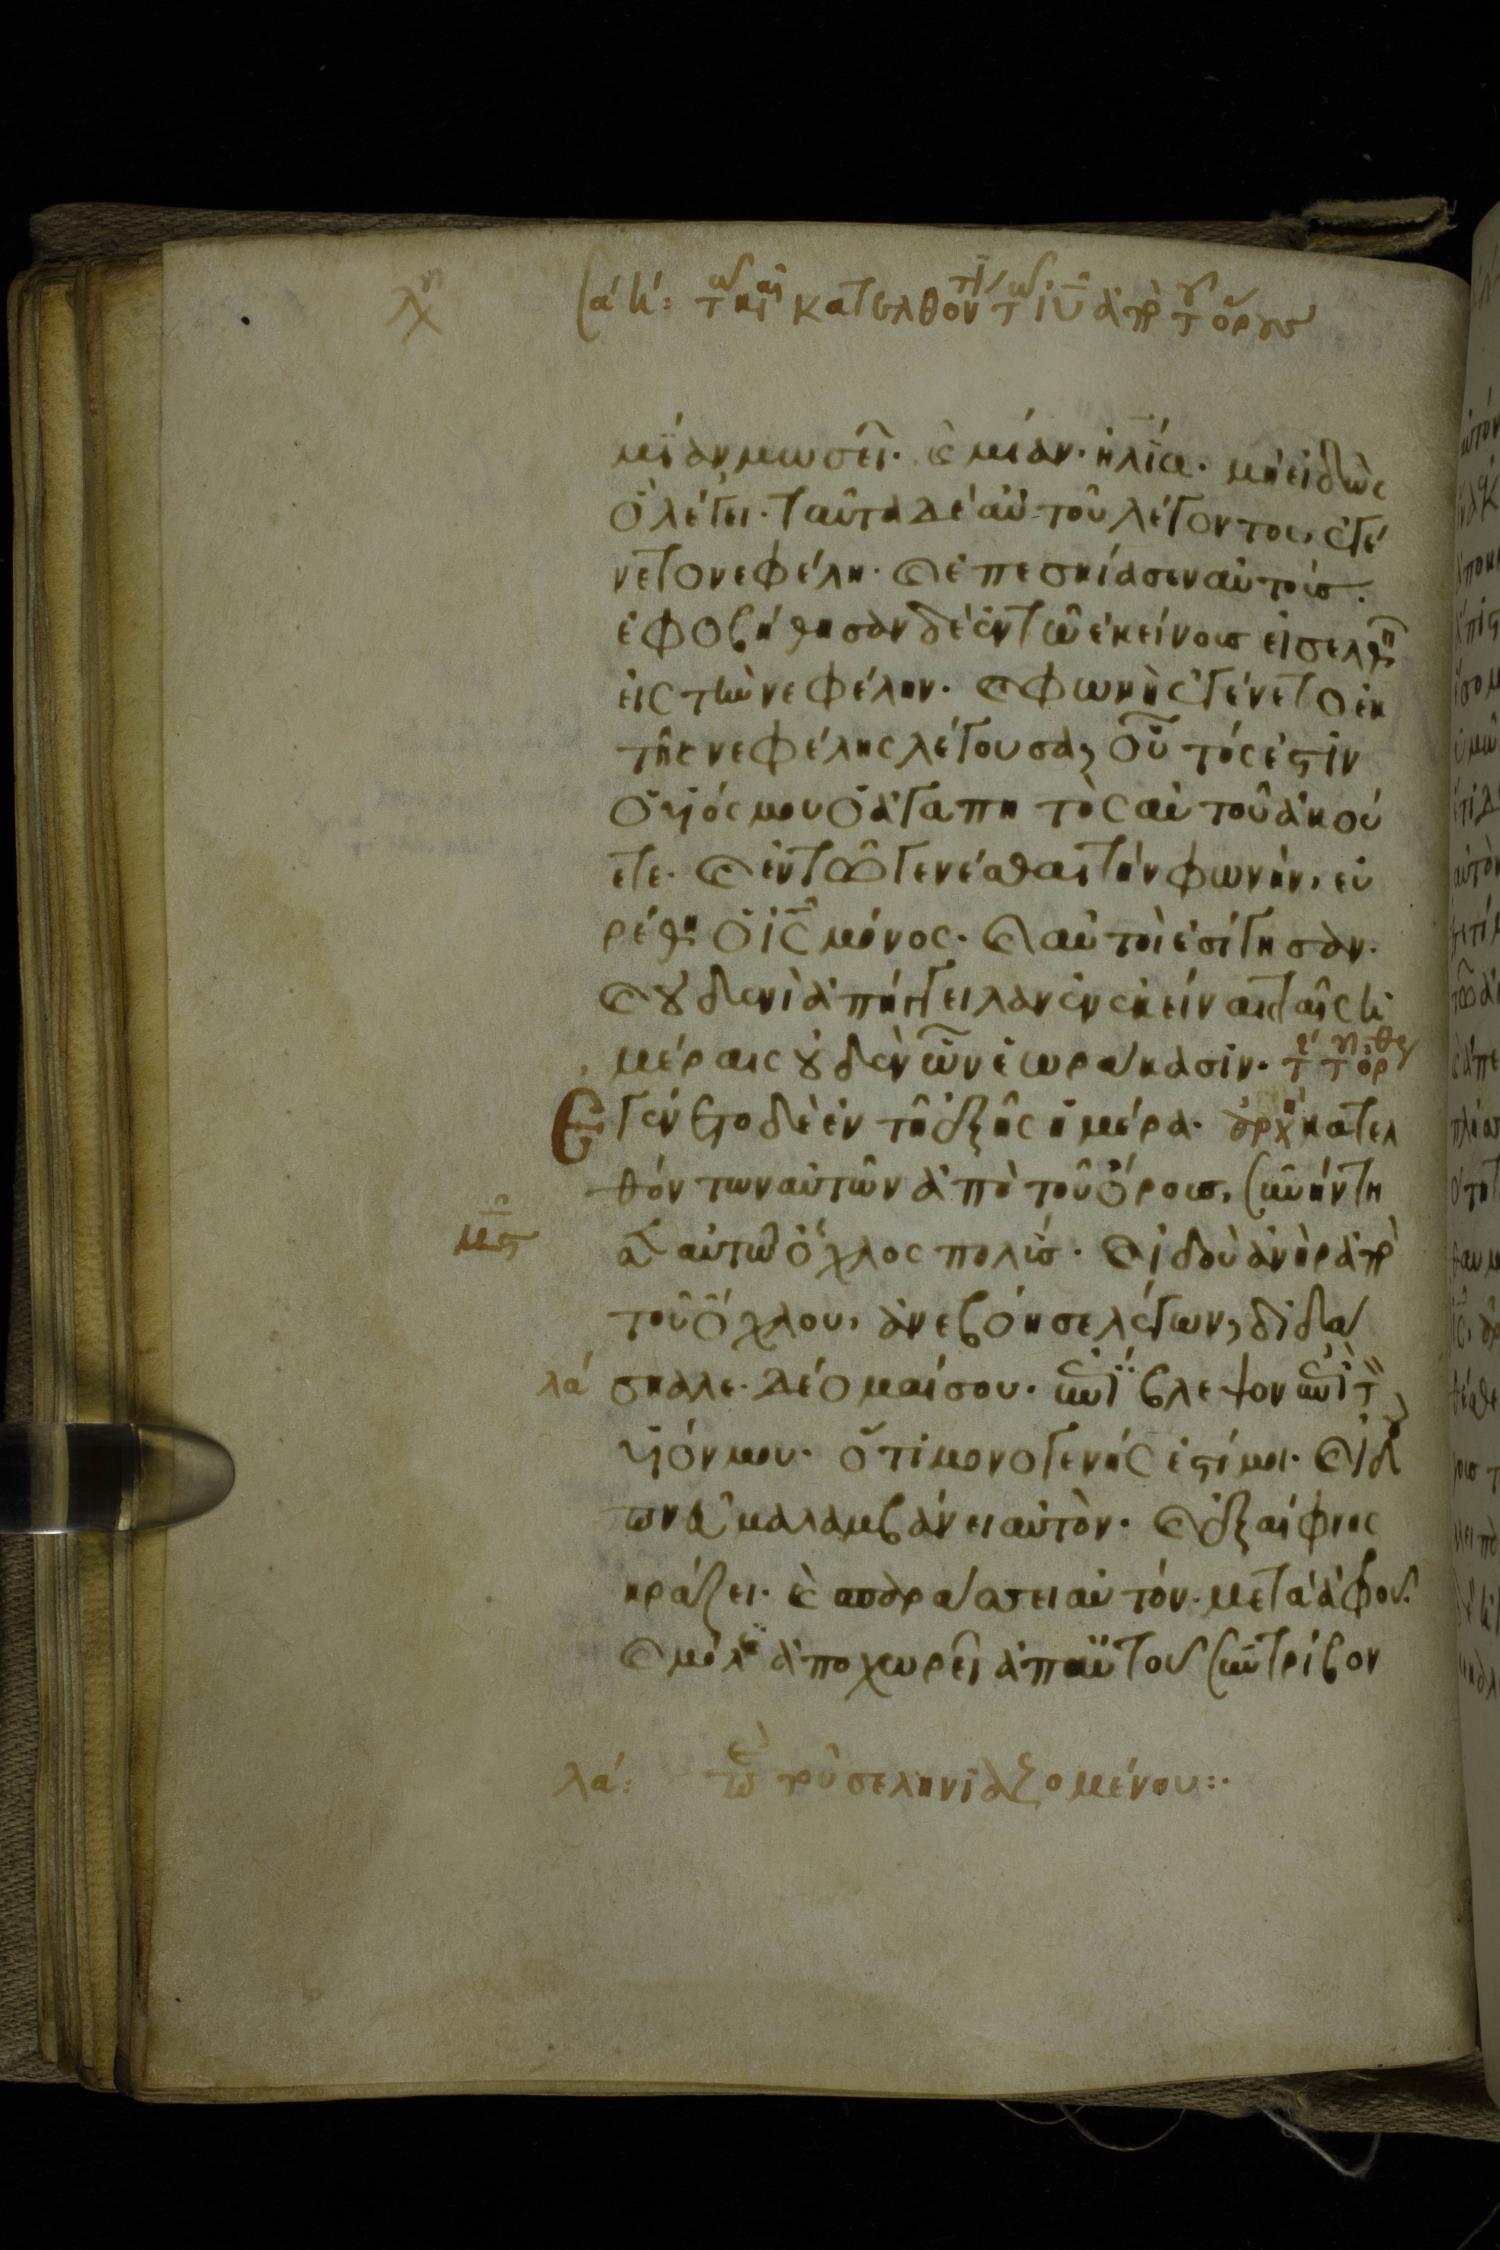 μίαν μωσεῖ. καὶ μίαν ἡλία. μὴ εἰδὼς
ὃ λέγει. ταῦτα δὲ αὐτοῦ λέγοντος, ἐγέ
νετο νεφέλη. καὶ ἐπεσκίασεν αὐτοῖς.
ἐφοβήθησαν δὲ ἐν τῶ ἐκείνους εἰσελθῆ
εἰς τὴν νεφέλην. καὶ φωνὴ ἐγένετο ἐκ
τῆς νεφέλης λέγουσα, οὗτός ἐστιν
ὁ υἱός μου ὁ ἀγαπητὸς αὐτοῦ ἀκού
ετε. καὶ ἐν τῶ γενέσθαι τὴν φωνὴν, εὑ
ρέθη ὁ ις μόνος. καὶ αὐτοὶ ἐσίγησαν.
καὶ οὐδενὶ ἀπήγγειλαν ἐν ἐκείναις ταῖς ἡ
μέραις οὐδὲν ὧν ἑωράκασιν.
Ἐγένετο δὲ ἐν τῆ ἑξῆς ἡμέρα. ἀρχ κατελ
θόντων αὐτῶν ἀπὸ τοῦ ὄρους, συνήντη
σεν αὐτῶ ὄχλος πολύς. καὶ ἰδοὺ ἀνὴρ ἀπὸ
τοῦ ὄχλου, ἀνεβόησε λέγων, διδά
λα σκαλε. δέομαί σου. ἐπίβλεψον ἐπὶ τ
υἱόν μου. ὅτι μονογενής ἐστί μοι. καὶ ἰδ
πνα λαμβάνει αὐτὸν. καὶ ἐξαίφνης
κράζει. καὶ σπαράσσει αὐτόν. μετὰ ἀφροῦ.
καὶ μόλις ἀποχωρεῖ ἀπ αὐτοῦ συντρίβον
λα: περὶ τοῦ σεληνιαζομένου:.